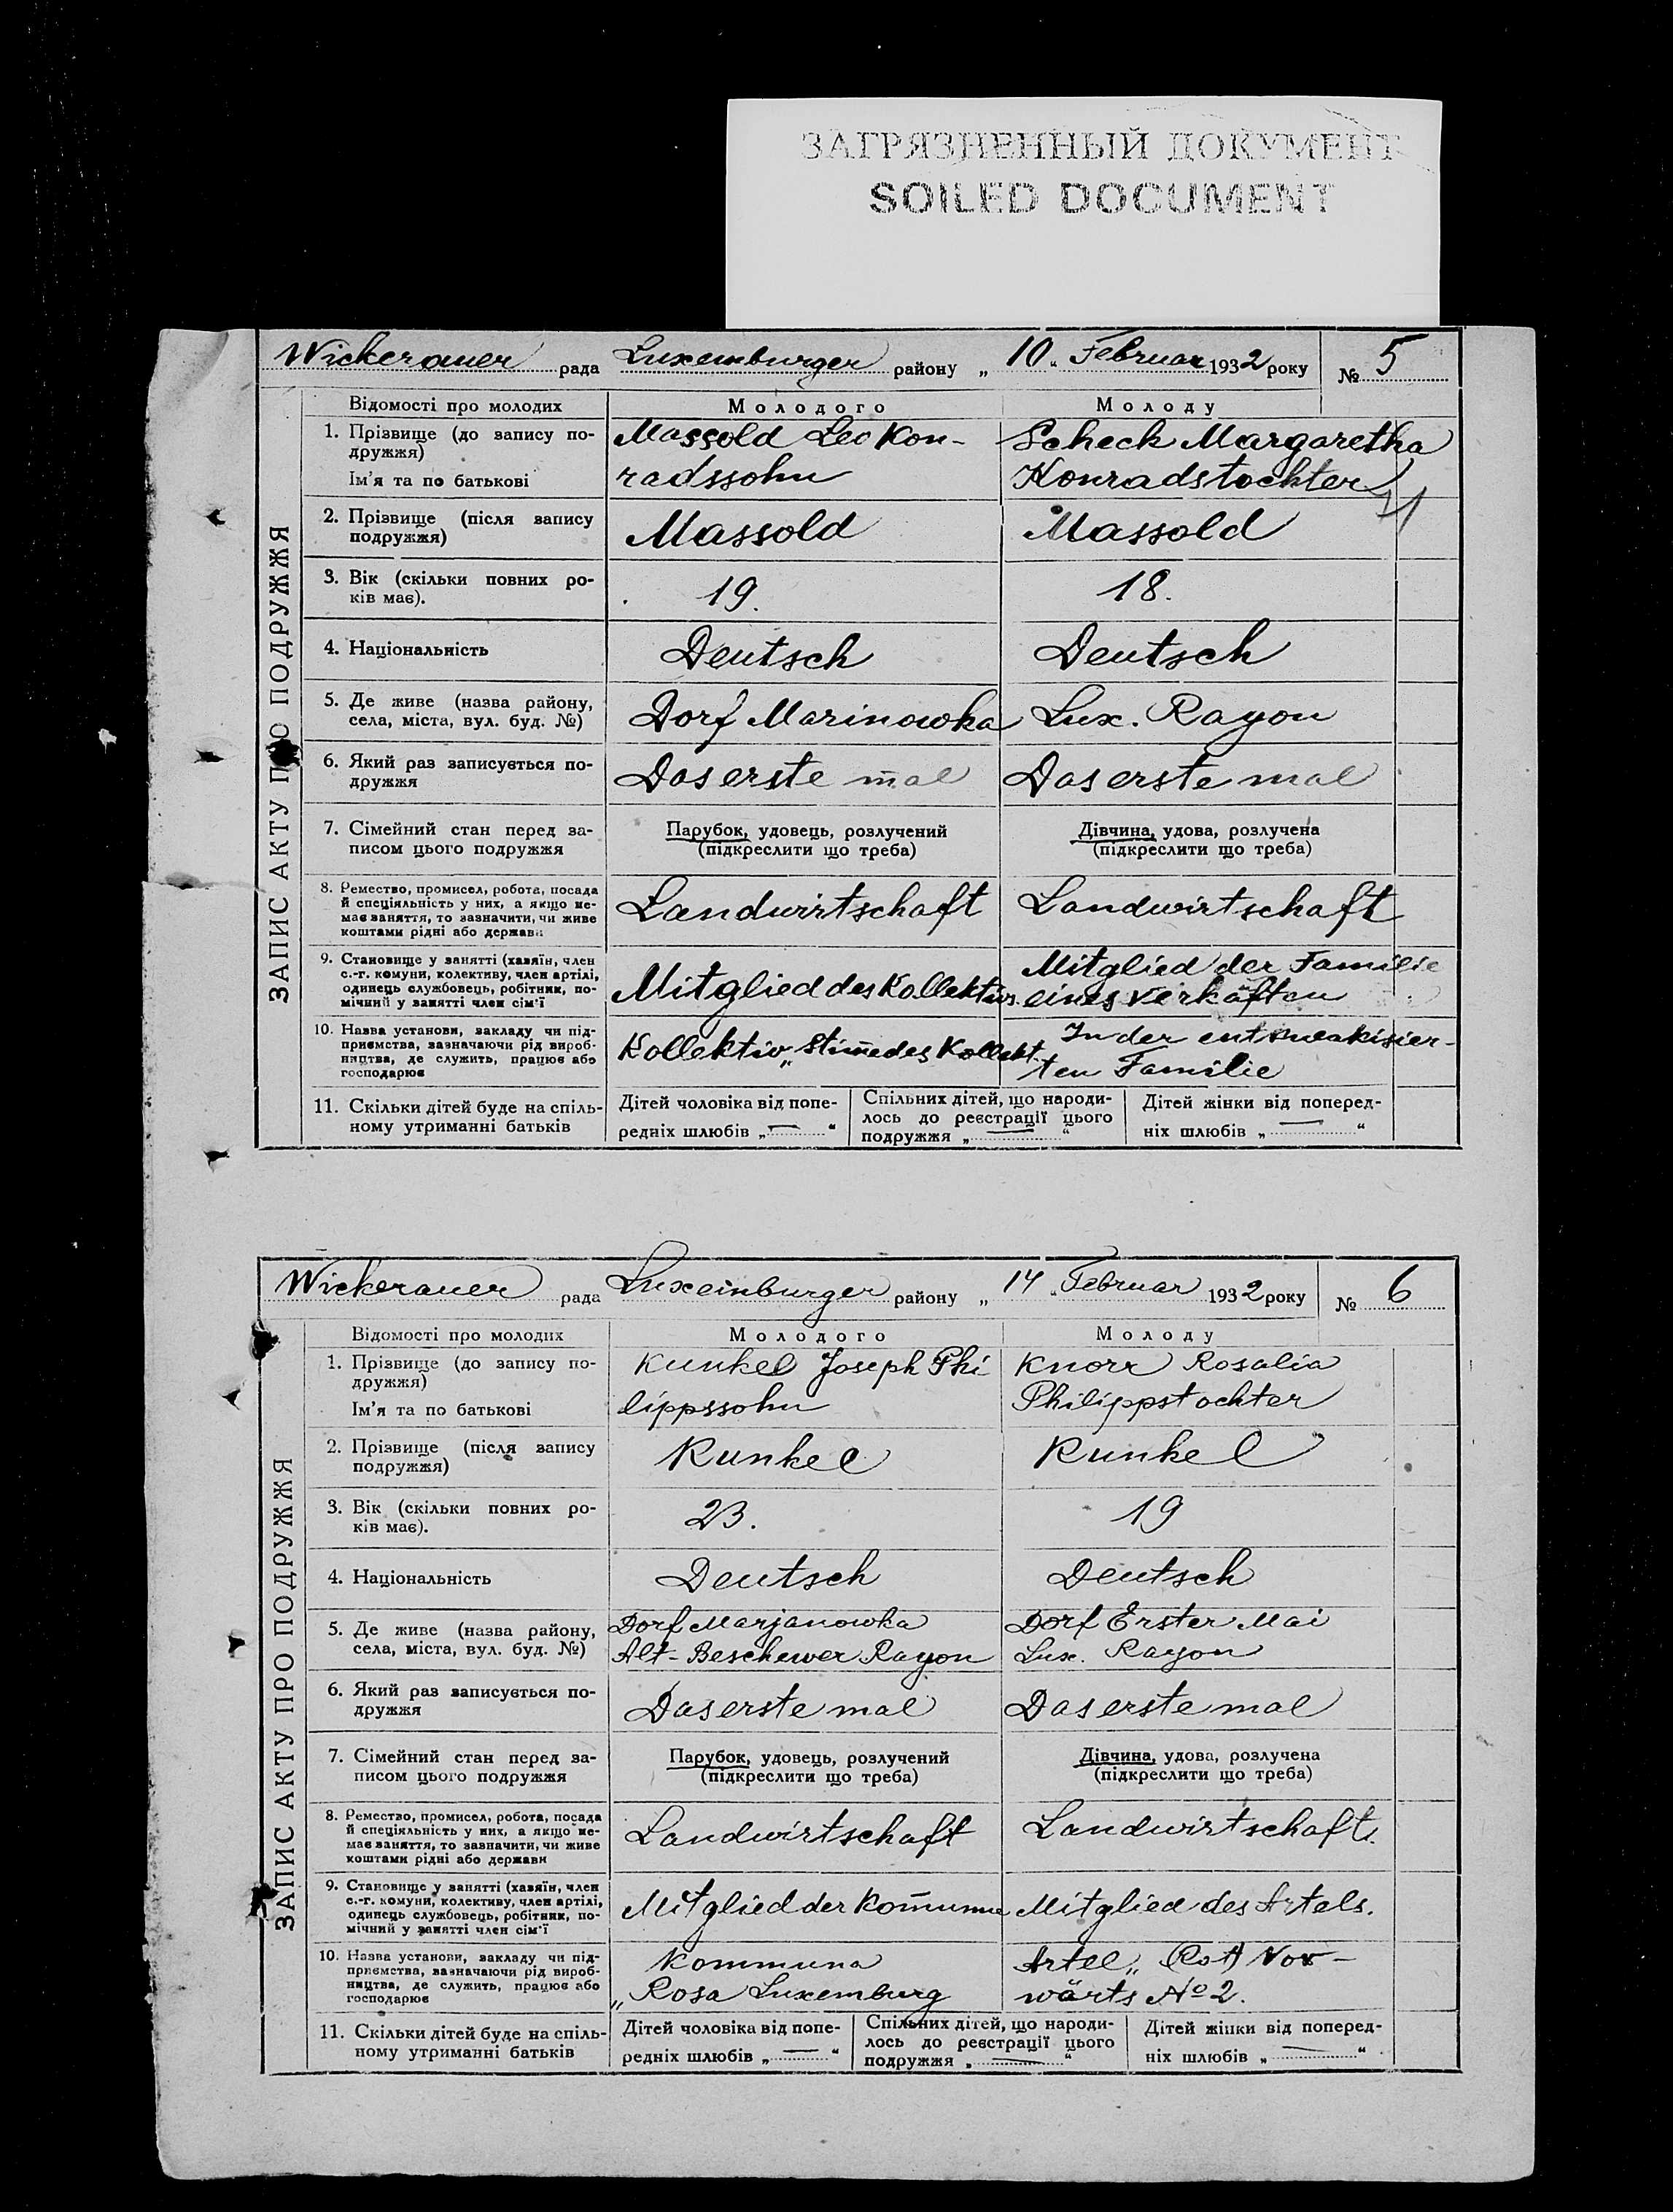 ЗАГРЯЗНЕННЫЙ ДОКУМЕНТ
SOILED DOCUMENT
Wickerauer рада Luxemburger району „ 10 “ Februar 1932 року № 5
ЗАПИС АКТУ ПРО ПОДРУЖЖЯ
Відомості про молодих Молодого Молоду
1. Прізвище (до запису по-
дружжя)
Ім'я та по батькові
Massold Leo Kon-
radssohn
Scheck Margaretha
Konradstochter
2. Прізвище (після запису
подружжя)
Massold Massold
3. Вік (скільки повних ро-
ків має).
19. 18.
4. Національність Deutsch Deutsch
5. Де живе (назва району,
села, міста, вул. буд. №)
Dorf Marinowka Lux. Rayon
6. Який раз записується по-
дружжя
Das erste mal Das erste mal
7. Сімейний стан перед за-
писом цього подружжя
Парубок, удовець, розлучений
(підкреслити що треба)
Дівчина, удова, розлучена
(підкреслити що треба)
8. Ремество, промисел, робота, посада
й спеціяльність у них, а якщо не-
має заняття, то зазначити, чи живе
коштами рідні або держави
Landwirtschaft Landwirtschaft
9. Становище у занятті (хазяїн, член
с.-г. комуни, колективу, член артілі,
одинець службовець, робітник, по-
мічний у занятті член сім'ї
Mitglied des Kollektivs.
Mitglied der Familie
eines
10. Назва установи, закладу чи під-
приємства, зазначаючи рід вироб-
ництва, де служить, працює або
господарює
Kollektiv „Stim̄e des Kollekt.
In der
ten Familie
11. Скільки дітей буде на спіль-
ному утриманні батьків
Дітей чоловіка від попе-
редніх шлюбів „ — “
Спільних дітей, що народи-
лось до реєстрації цього
подружжя „ — “
Дітей жінки від поперед-
ніх шлюбів „ — “
Wickerauer рада Luxemburger району „ 14 “ Februar 1932 року № 6
ЗАПИС АКТУ ПРО ПОДРУЖЖЯ
Відомості про молодих Молодого Молоду
1. Прізвище (до запису по-
дружжя)
Ім'я та по батькові
Kunkel Joseph Phi
lippssohn
Knorr Rosalia
Philippstochter
2. Прізвище (після запису
подружжя)
Kunkel Kunkel
3. Вік (скільки повних ро-
ків має).
23. 19
4. Національність Deutsch Deutsch
5. Де живе (назва району,
села, міста, вул. буд. №)
Dorf Marjanowka
Alt-Beschewer Rayon
Dorf Erster Mai
Lux. Rayon
6. Який раз записується по-
дружжя
Das erste mal Das erste mal
7. Сімейний стан перед за-
писом цього подружжя
Парубок, удовець, розлучений
(підкреслити що треба)
Дівчина, удова, розлучена
(підкреслити що треба)
8. Ремество, промисел, робота, посада
й спеціяльність у них, а якщо не-
має заняття, то зазначити, чи живе
коштами рідні або держави
Landwirtschaft Landwirtschaft.
9. Становище у занятті (хазяїн, член
с.-г. комуни, колективу, член артілі,
одинець службовець, робітник, по-
мічний у занятті член сім'ї
Mitglied der Kom̄une Mitglied des Artels.
10. Назва установи, закладу чи під-
приємства, зазначаючи рід вироб-
ництва, де служить, працює або
господарює
Kommuna
„Rosa Luxemburg
Artel „ (Rot) Vor-
wärts № 2.
11. Скільки дітей буде на спіль-
ному утриманні батьків
Дітей чоловіка від попе-
редніх шлюбів „ — “
Спільних дітей, що народи-
лось до реєстрації цього
подружжя „ — “
Дітей жінки від поперед-
ніх шлюбів „ — “